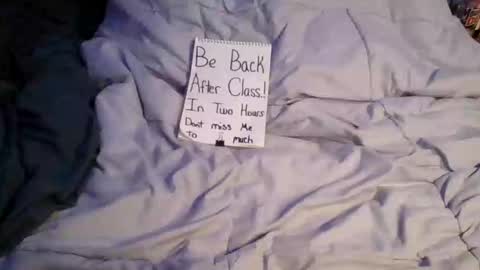 Be Back
After Class.!
In Two Hours
Dont miss Me
To much